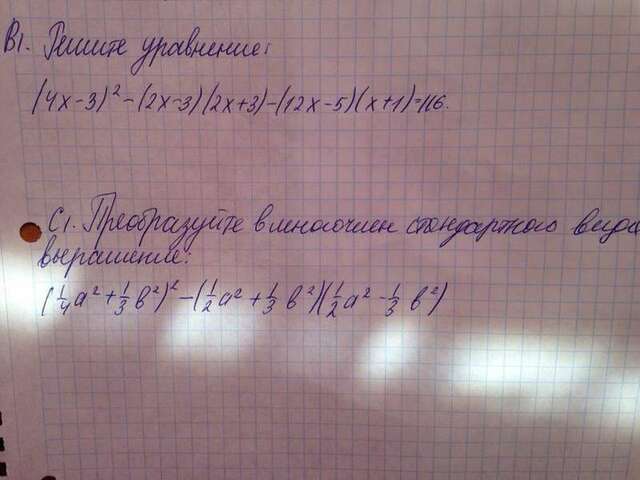 В1. Решите уравнение:
(4x-3)² - (2x-3)(2x+3)-(12x-5)(x+1)=116.
С1. Преобразуйте в многочлен стандартного вида
выражение:
(1/4 a² + 1/3 b²)² - (1/2 a² + 1/3 b²)(1/2 a² - 1/3 b²)